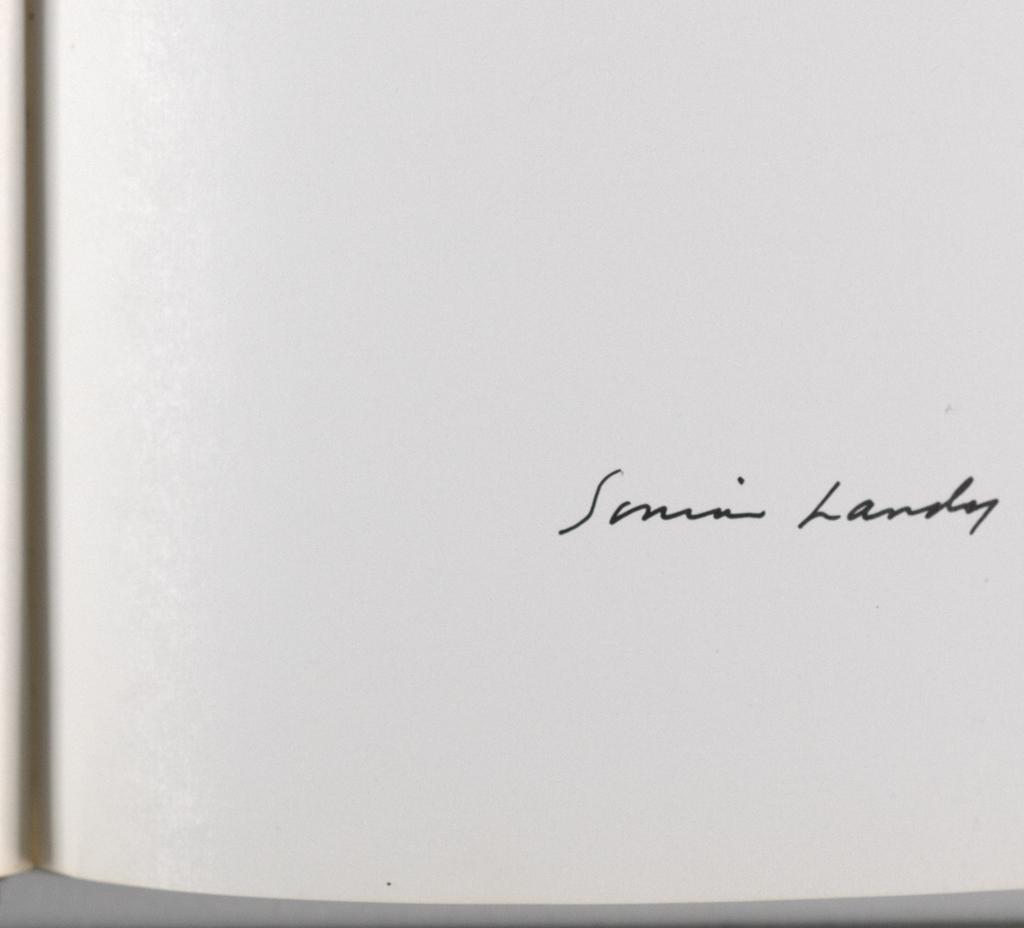 Sonia Landy